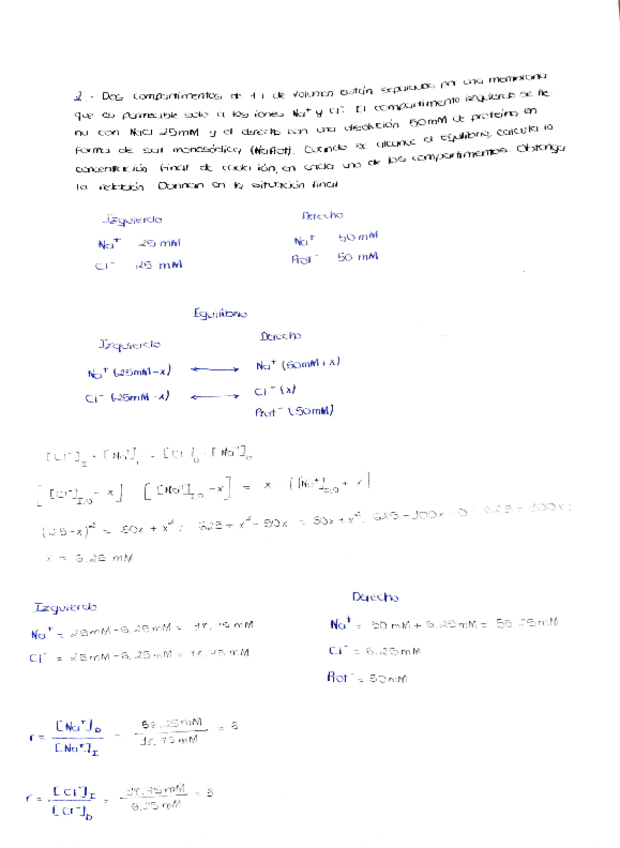 2.- Dos compartimentos de 1 l de volumen están separados por una membrana
que es permeable solo a los iones Na⁺ y Cl⁻. El compartimento izquierdo se lle
na con NaCl 25mM y el derecho con una disolución 50mM de proteína en
forma de sal monosódica (NaProt). Cuando se alcance el equilibrio, calcula la
concentración final de cada ión, en cada uno de los compartimentos. Obtenga
la relación Donnan en la situación final
Izquierdo Derecho
Na⁺ 25 mM Na⁺ 50 mM
Cl⁻ 25 mM Prot⁻ 50 mM
Equilibrio
Izquierdo Derecho
Na⁺ (25mM-x) ⟷ Na⁺ (50mM+x)
Cl⁻ (25mM-x) ⟷ Cl⁻ (x)
Prot⁻ (50mM)
[Cl⁻]_I · [Na⁺]_I = [Cl⁻]_D · [Na⁺]_D
[[Cl⁻]_I,0 - x] · [[Na⁺]_I,0 - x] = x · ([Na⁺]_D,0 + x)
(25-x)² = 50x + x² ; 625 + x² - 50x = 50x + x² ; 625 - 100x = 0 ; 625 = 100x ;
x = 6.25 mM
Izquierdo Derecho
Na⁺ = 25mM - 6,25mM = 18,75 mM Na⁺ = 50 mM + 6,25mM = 56,25mM
Cl⁻ = 25mM - 6,25mM = 18,75 mM Cl⁻ = 6.25mM
Prot⁻ = 50mM
r = [Na⁺]_D / [Na⁺]_I = 56,25mM / 18,75mM = 3
r = [Cl⁻]_I / [Cl⁻]_D = 18,75mM / 6,25mM = 3